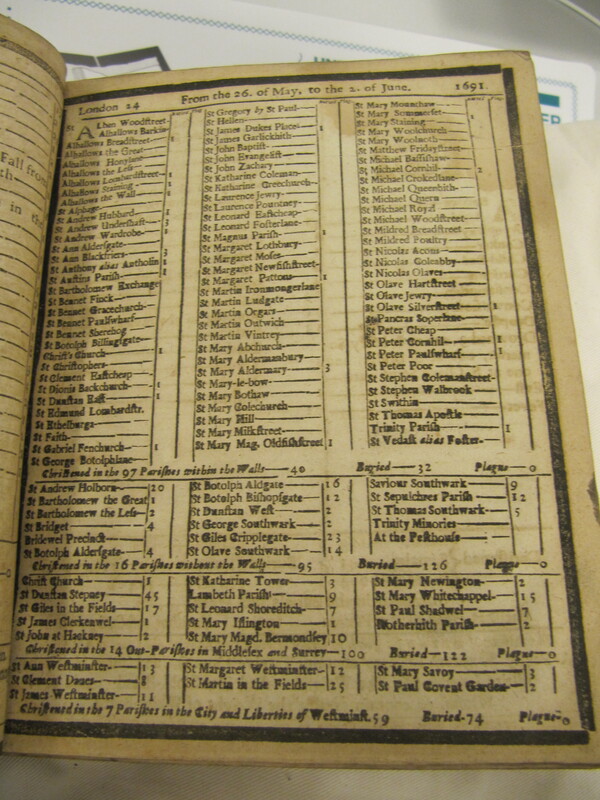 London 24 From the 26. of May, to the 2. of June. 1691.
St Alban Woodstreet
Alhallows Barkin
Alhallows Breadstreet 1
Alhallows the Great
Alhallows Honylane
Alhallows the Less
Alhallows Lombardstreet 1
Alhallows Staining
Alhallows the Wall
St Alphage
St Andrew Hubbard
St Andrew Undershaft
St Andrew Wardrobe
St Ann Aldersgate
St Ann Blackfriers
St Anthony alias Antholin
St Austins Parish
St Bartholomew Exchange
St Bennet Finck
St Bennet Gracechurch
St Bennet Paulswharf
St Bennet Sherehog
St Botolph Billingsgate
Christ's Church 1
St Christophers
St Clement Eastcheap
St Dionis Backchurch 1
St Dunstan East 1
St Edmund Lombardstr.
St Ethelburga
St Faith
St Gabriel Fenchurch 1
St George Botolphlane
St Gregory by St Paul
St Hellen
St James Dukes Place 1
St James Garlickhith
St John Baptist
St John Evangelist
St John Zachary
St Katharine Coleman
St Katharine Creechurch
St Laurence Jewry
St Laurence Pountney
St Leonard Eastcheap
St Leonard Fosterlane
St Magnus Parish 1
St Margaret Lothbury
St Margaret Moses
St Margaret Newfishstreet
St Margaret Pattons 1
St Martin Ironmongerlane
St Martin Ludgate
St Martin Orgars
St Martin Outwich
St Martin Vintrey
St Mary Abchurch
St Mary Aldermanbury
St Mary Aldermary 3
St Mary-le-bow
St Mary Bothaw
St Mary Colechurch
St Mary Hill
St Mary Milkstreet
St Mary Mag. Oldfishstreet 1
St Mary Mounthaw
St Mary Sommerset
St Mary Staining
St Mary Woolchurch
St Mary Woolnoth
St Matthew Fridaystreet
St Michael Bassishaw
St Michael Cornhil 2
St Michael Crokedlane
St Michael Queenhith
St Michael Quern
St Michael Royal
St Michael Woodstreet
St Mildred Breadstreet
St Mildred Poultry
St Nicolas Acons
St Nicolas Coleabby
St Nicolas Olaves
St Olave Hartstreet
St Olave Jewry
St Olave Silverstreet 1
St Pancras Soperlane
St Peter Cheap
St Peter Cornhil 1
St Peter Paulswharf 1
St Peter Poor
St Stephen Colemanstreet
St Stephen Walbrook
St Swithin
St Thomas Apostle
Trinity Parish 1
St Vedast alias Foster
Christned in the 97 Parishes within the Walls 40 Buried 32 Plague 0
St Andrew Holborn 20
St Bartholomew the Great 1
St Bartholomew the Less 2
St Bridget 4
Bridewel Precinct
St Botolph Aldersgate 4
St Botolph Aldgate 16
St Botolph Bishopsgate 12
St Dunstan West 2
St George Southwark 2
St Giles Cripplegate 23
St Olave Southwark 14
Saviour Southwark 9
St Sepulchres Parish 12
St Thomas Southwark 5
Trinity Minories
At the Pesthouse
Christned in the 16 Parishes without the Walls 95 Buried 126 Plague 0
Christ Church 1
St Dunstan Stepney 45
St Giles in the Fields 17
St James Clerkenwel 1
St John at Hackney 2
St Katharine Tower 3
Lambeth Parish 9
St Leonard Shoreditch 7
St Mary Islington 1
St Mary Magd. Bermondsey 10
St Mary Newington 2
St Mary Whitechappel 15
St Paul Shadwel 7
Rotherhith Parish 2
Christned in the 14 Out-Parishes in Middlesex and Surrey 100 Buried 122 Plague 0
St Ann Westminster 13
St Clement Danes 8
St James Westminster 11
St Margaret Westminster 12
St Martin in the Fields 25
St Mary Savoy 3
St Paul Covent Garden 2
Christned in the 7 Parishes in the City and Liberties of Westminst. 59 Buried 74 Plague 0